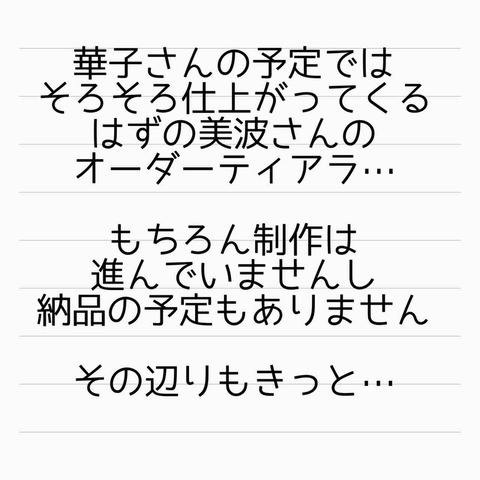 華子さんの予定では
そろそろ仕上がってくる
はずの美波さんの
オーダーティアラ…
もちろん制作は
進んでいませんし
納品の予定もありません
その辺りもきっと…